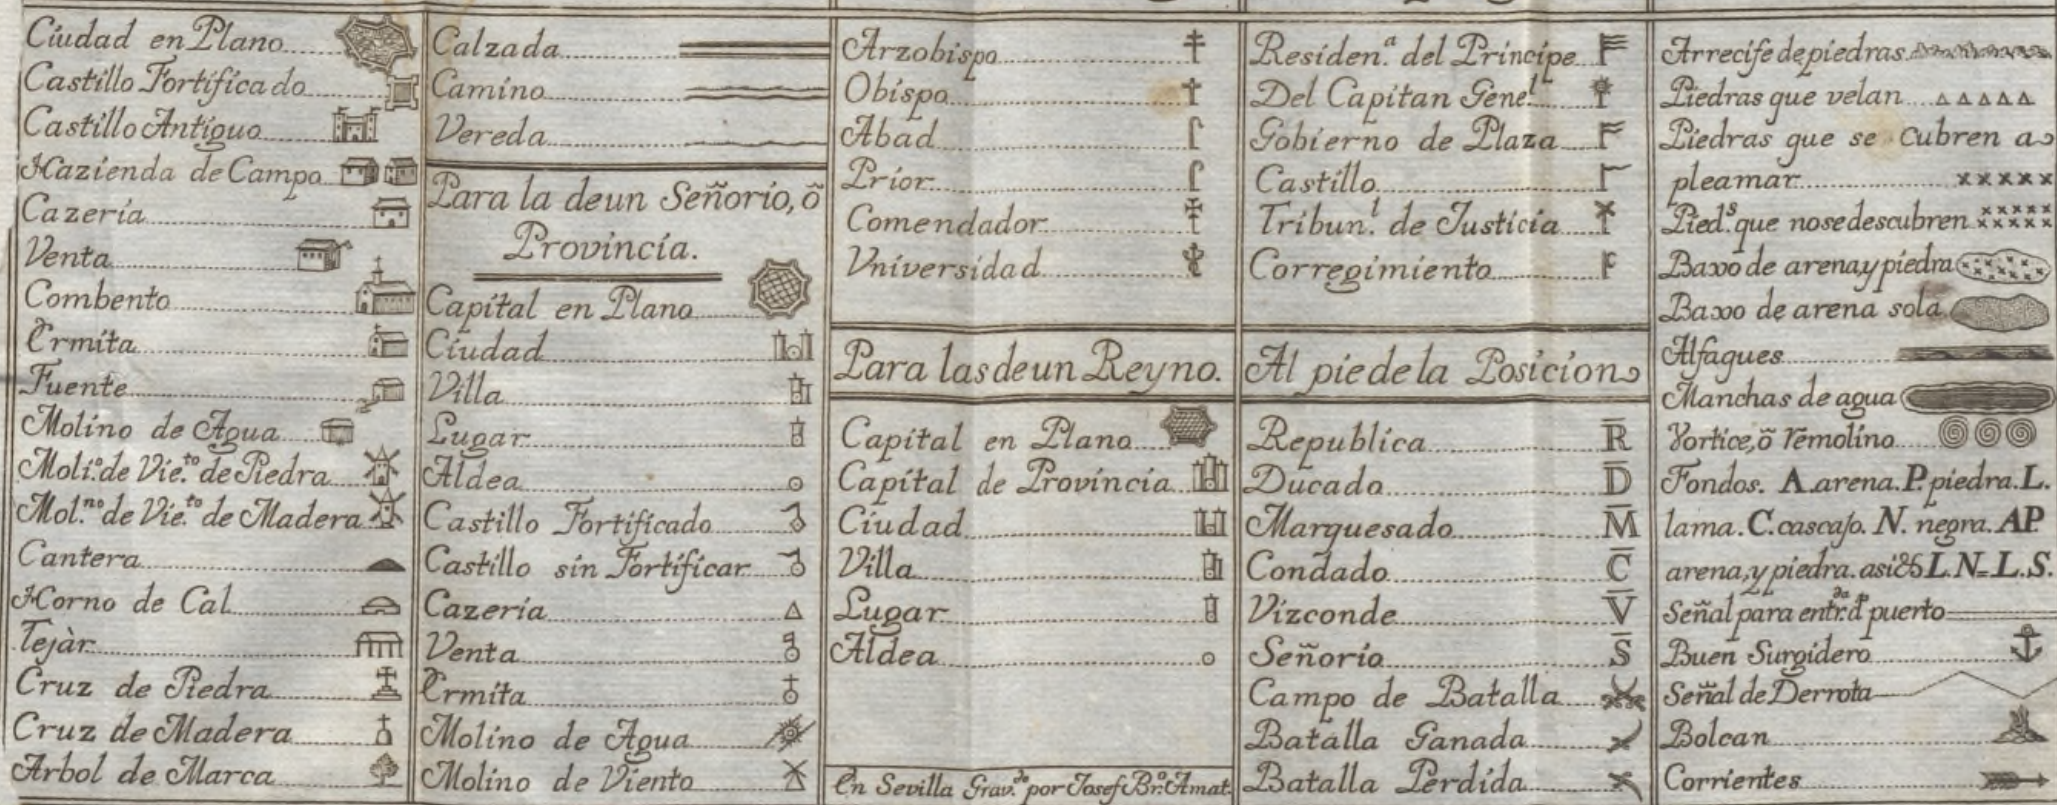 Ciudad en Plano
Castillo Fortificado
Castillo Antiguo
Hazienda de Campo
Cazería
Venta
Combento
Ermita
Fuente
Molino de Agua
Moli.º de Vie.to de Piedra
Mol.no de Vie.to de Madera
Cantera
Horno de Cal
Tejàr
Cruz de Piedra
Cruz de Madera
Arbol de Marca
Calzada
Camino
Vereda
Para la de un Señorio, õ
Provincia.
Capital en Plano
Ciudad
Villa
Lugar
Aldea
Castillo Fortificado
Castillo sin Fortificar
Cazería
Venta
Ermita
Molino de Agua
Molino de Viento
Arzobispo
Obispo
Abad
Prior
Comendador
Vniversidad
Para las de un Reyno.
Capital en Plano
Capital de Provincia
Ciudad
Villa
Lugar
Aldea
En Sevilla Grav.do por Josef Br.º Amat.
Residen.a del Principe
Del Capitan Gene.l
Gobierno de Plaza
Castillo
Tribun.l de Justicia
Corregimiento
Al pie de la Posicion
Republica R
Ducado D
Marquesado M
Condado C
Vizconde V
Señorio S
Campo de Batalla
Batalla Ganada
Batalla Perdida
Arrecife de piedras
Piedras que velan
Piedras que se cubren a
pleamar
Pied.s que no se descubren
Baxo de arena y piedra
Baxo de arena sola
Alfaques
Manchas de agua
Vortice, õ remolino
Fondos. A. arena. P. piedra. L.
lama. C. cascajo. N. negra. AP
arena, y piedra. asi L.N.=L.S.
Señal para entr.da d.e puerto
Buen Surgidero
Señal de Derrota
Bolcan
Corrientes